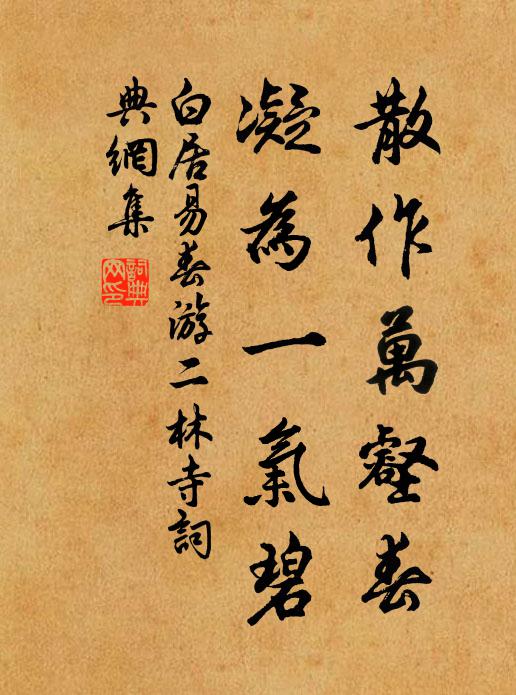 散作萬壑春
凝為一氣碧
白居易春游二林寺詞
典網集
詞典
网印